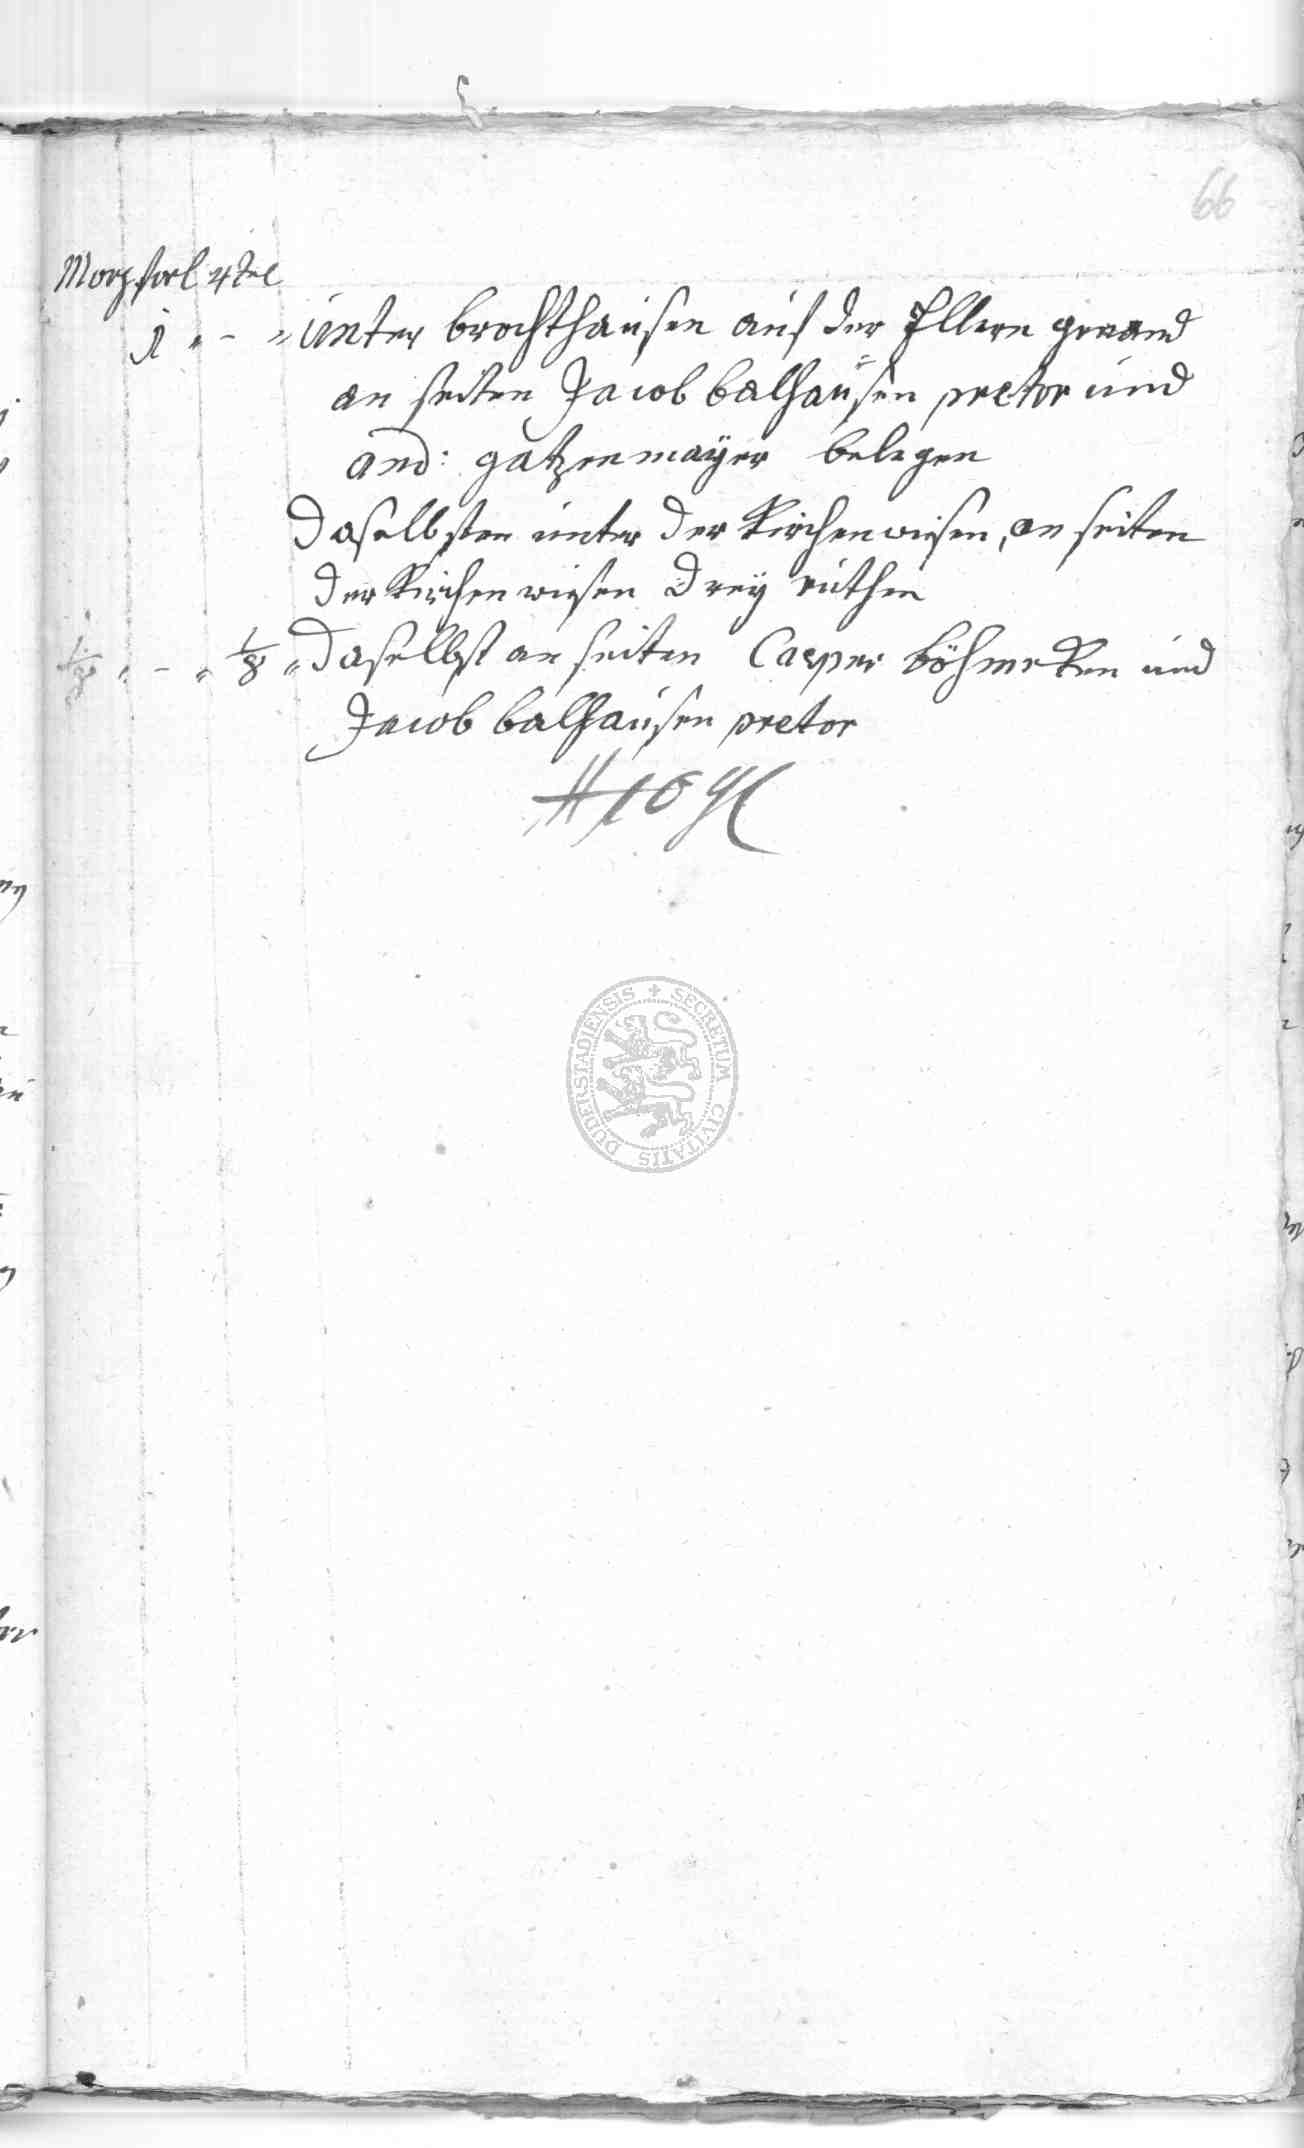 66
Morg. forl. 4tel
1 " - " unter brochthausen auf der Ellern gewand
an seiten Jacob balhausen pretor und
and: gatzenmaÿer belegen
Daselbsten unter der Kirchenwiesen, an seiten
der Kirchen wiesen Dreÿ ruthen
1/8 " - " 1/8 " Daselbst an seiten Casper böhmeken und
Jacob balhausen pretor
SECRETUM CIVITATIS DUDERSTADIENSIS